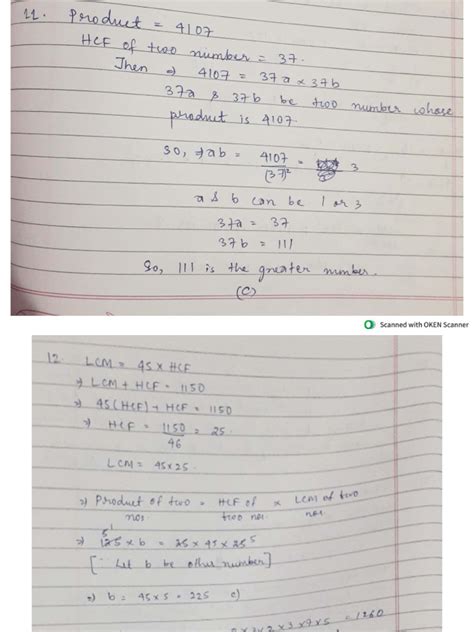 11. Product = 4107
HCF of two number = 37.
Then ⇒ 4107 = 37a × 37b
37a & 37b be two number whose
product is 4107.
So, ⇒ ab = 4107/(37)² = 3
a & b can be 1 or 3
37a = 37
37b = 111
So, 111 is the greater number.
(C)
Scanned with OKEN Scanner
12. LCM = 45 × HCF
⇒ LCM + HCF = 1150
⇒ 45(HCF) + HCF = 1150
⇒ HCF = 1150/46 = 25.
LCM = 45×25.
⇒ Product of two nos. = HCF of two nos. × LCM of two nos.
⇒ 125 × b = 25 × 45 × 25 5
[∵ Let b be other number]
⇒ b = 45×5 = 225 c)
×2×3×7×5 = 1260